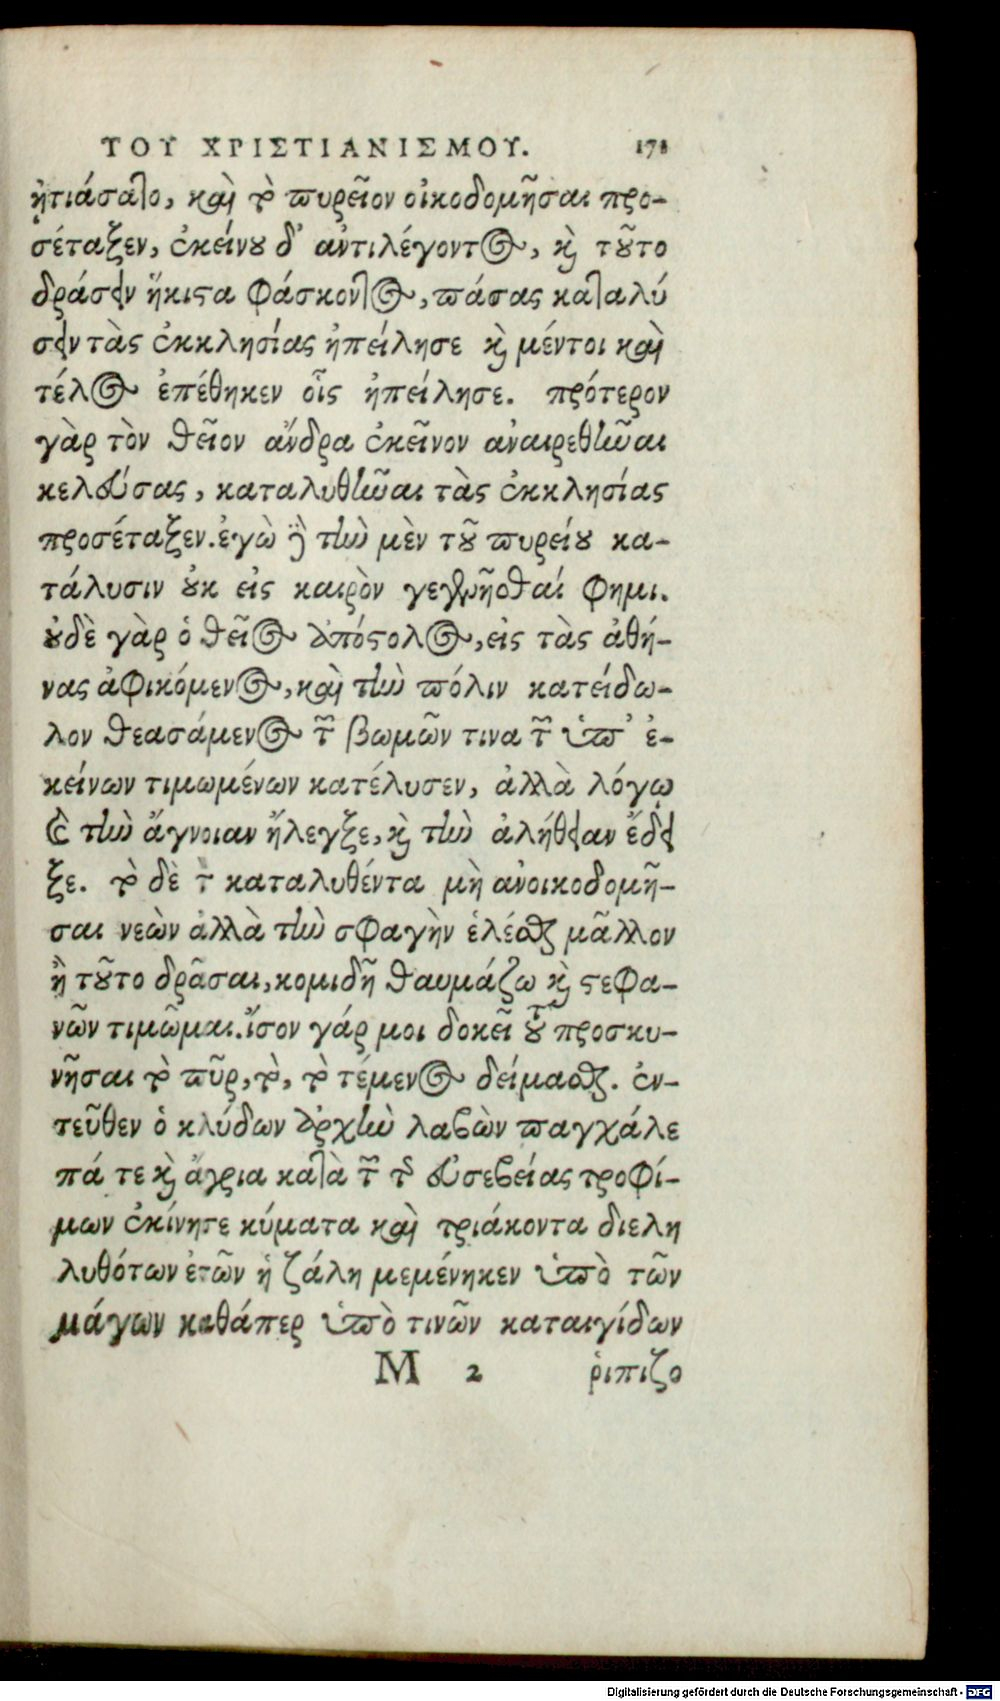 ΤΟΥ ΧΡΙΣΤΙΑΝΙΣΜΟΥ. 178
ᾐτιάσατο, καὶ τὸ πυρεῖον οἰκοδομῆσαι προ-
σέταξεν, ἐκείνου δ' ἀντιλέγοντος, καὶ τοῦτο
δράσειν ἥκιστα φάσκοντος, πάσας καταλύ
σειν τὰς ἐκκλησίας ἠπείλησε καὶ μέντοι καὶ
τέλος ἐπέθηκεν οἷς ἠπείλησε. πρότερον
γὰρ τὸν θεῖον ἄνδρα ἐκεῖνον ἀναιρεθῆναι
κελεύσας, καταλυθῆναι τὰς ἐκκλησίας
προσέταξεν. ἐγὼ δὲ τὴν μὲν τοῦ πυρείου κα-
τάλυσιν οὐκ εἰς καιρὸν γεγενῆσθαί φημι.
οὐδὲ γὰρ ὁ θεῖος ἀπόστολος, εἰς τὰς ἀθή-
νας ἀφικόμενος, καὶ τὴν πόλιν κατείδω-
λον θεασάμενος τῶν βωμῶν τινα τῶν ὑπ' ἐ-
κείνων τιμωμένων κατέλυσεν, ἀλλὰ λόγῳ
καὶ τὴν ἄγνοιαν ἤλεγξε, καὶ τὴν ἀλήθειαν ἔδει
ξε. τὸ δὲ τὸν καταλυθέντα μὴ ἀνοικοδομῆ-
σαι νεὼν ἀλλὰ τὴν σφαγὴν ἑλέσθαι μᾶλλον
ἢ τοῦτο δρᾶσαι, κομιδῆ θαυμάζω καὶ στεφα-
νῶν τιμῶμαι. ἴσον γάρ μοι δοκεῖ τοῦ προσκυ-
νῆσαι τὸ πῦρ, τὸ, τὸ τέμενος δείμασθαι. ἐν-
τεῦθεν ὁ κλύδων ἀρχὴν λαβὼν παγχάλε
πά τε καὶ ἄγρια κατὰ τῶν τῆς εὐσεβείας τροφί-
μων ἐκίνησε κύματα καὶ τριάκοντα διελη
λυθότων ἐτῶν ἡ ζάλη μεμένηκεν ὑπὸ τῶν
μάγων καθάπερ ὑπὸ τινῶν καταιγίδων
Μ 2 ῥιπιζο
Digitalisierung gefördert durch die Deutsche Forschungsgemeinschaft - DFG